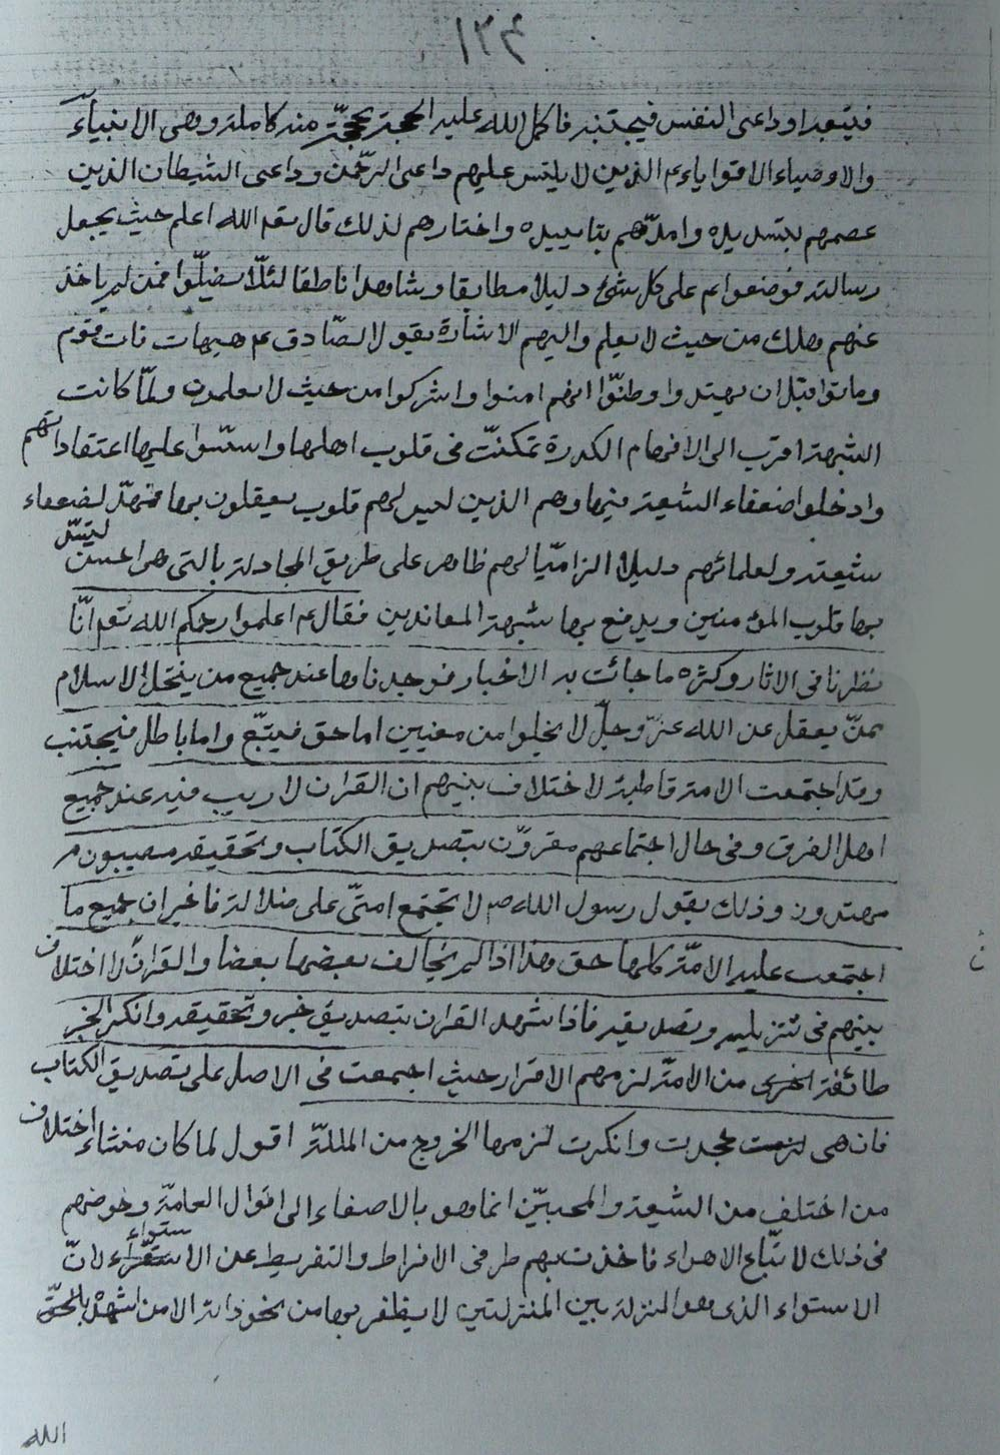 ١٢٤
فيتبعه او داعى النفس فيجتنبه فاكمل الله عليه الحجة بحجّة منه كاملة وهى الانبيآء
والاوصياء الاقوياء ع الذين لا يلتبس عليهم داعى الرحمن وداعى الشيطان الذين
عصمهم بتسديده وامدّهم بتاييده واختارهم لذلك قال تعم الله اعلم حيث يجعل
رسالته فوضعوا ع على كل شئ دليلا مطابقا وشاهدا ناطقا لئلّا يضلّوا فمن لم ياخذ
عنهم هلك من حيث لا يعلم واليهم الاشارة بقول الصّادق ع هيهات فات قوم
وماتوا قبل ان يهتدوا وظنّوا انهم امنوا واشركوا من حيث لا يعلمون ولمّا كانت
الشبهة اقرب الى الافهام الكدرة تمكنّت فى قلوب اهلها واسّسوا عليها اعتقاداتهم
وادخلوا ضعفاء الشيعة فيها وهم الذين ليس لهم قلوب يعقلون بها فمهّد لضعفاء
شيعته ولعلمائهم دليلا الزاميّا لهم ظاهر على طريق المجادلة بالتى هى احسن ليثبّت
بها قلوب المؤمنين ويدفع بها شبهة المعاندين فقال ع اعلموا رحمكم الله تعم انّا
نظرنا فى الاثار وكثرة ما جائت به الاخبار فوجدناها عند جميع من ينتحل الاسلام
ممنّ يعقل عن الله عزّ وجلّ لا يخلوا من معنيين اما حق فيتبّع واما باطل فيجتنب
وقد اجتمعت الامة قاطبة لا اختلاف بينهم ان القران لا ريب فيه عند جميع
اهل الفرق وفى حال اجتماعهم مقروّن بتصديق الكتاب وتحقيقه مصيبون
مهتدون وذلك بقول رسول الله ص لا تجتمع امتّى على ضلالة فاخبر ان جميع ما
اجتمعت عليه الامّة كلها حق وهذا اذا لم يخالف بعضها بعضا والقران لا اختلاف
بينهم فى تنزيله وتصديقه فاذا شهد القران بتصديق خبر وتحقيقه وانكر الخبر
طائفة من الامّة لزمهم الاقرار حيث اجمعت فى الاصل على تصديق الكتاب
فان هى جحدت وانكرت لزمها الخروج من المللّة اقول لما كان منشاء اختلاف
من اختلف من الشيعة والمحبيّن انما هو بالاصغاء الى اقوال العامّة وخوضهم
فى ذلك لاتّباع الاهواء فاخذت بهم طرفى الافراط والتفريط عن الاستواء لانّ
الاستواء الذى هو المنزلة بين المنزلتين لا يظفر بها من نحو ذاته الا من اشهده بالحقّ
الله